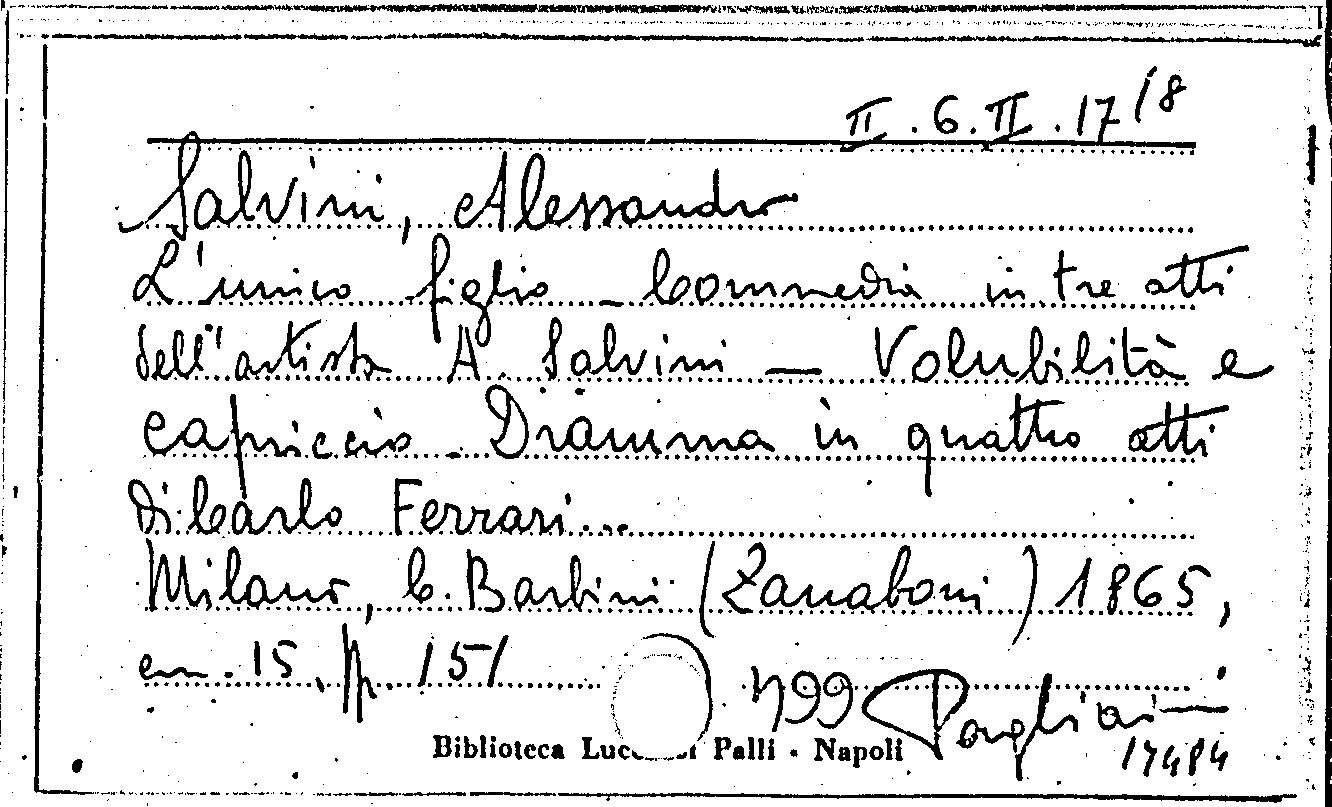 II.6.II.17/8
Salvini, Alessandro
L'unico figlio - Commedia in tre atti
dell'artista A. Salvini — Volubilità e
capriccio. Dramma in quattro atti
di Carlo Ferrari...
Milano, C. Barbini (Zanaboni) 1865,
cm. 15, pp. 151
499 Pagliai
Biblioteca Luc Palli - Napoli
17484